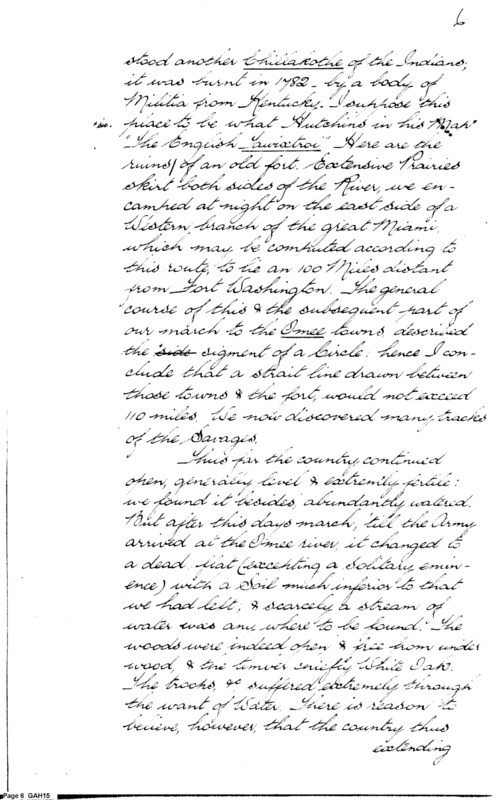 6
stood another Chillakothe of the Indians;
it was burnt in 1782 - by a body of
Militia from Kentucky. I suppose this
place to be what Hutchins in his Map
"The English Tawixtwi" Here are the
ruins of an old fort. Extensive Prairies
skirt both sides of the River, we en-
camped at night on the east side of a
Western, branch of the great Miami,
which may be computed according to
this route, to lie an 100 Miles distant
from Fort Washington. The general
course of this & the subsequent part of
our march to the Omee towns, described
the side sigment of a Circle: hence I con-
clude that a strait line drawn between
those towns & the fort, would not exceed
110 miles. We now discovered many tracks
of the Savages.
Thus far the country continued
open, generally level & extremily fertile:
we found it besides, abundantly watered.
But after this days march, till the Army
arrived at the Omee river, it changed to
a dead flat (excepting a Solitary emin-
ence) with a Soil much inferior to that
we had left; & scarcely a stream of
water was any where to be found. The
woods were indeed open & free from under
wood, & the timber chiefly White Oak.
The troops, &c suffered extremely through
the want of Water. There is reason to
believe, however, that the country thus
extending
Page 6 GAH15